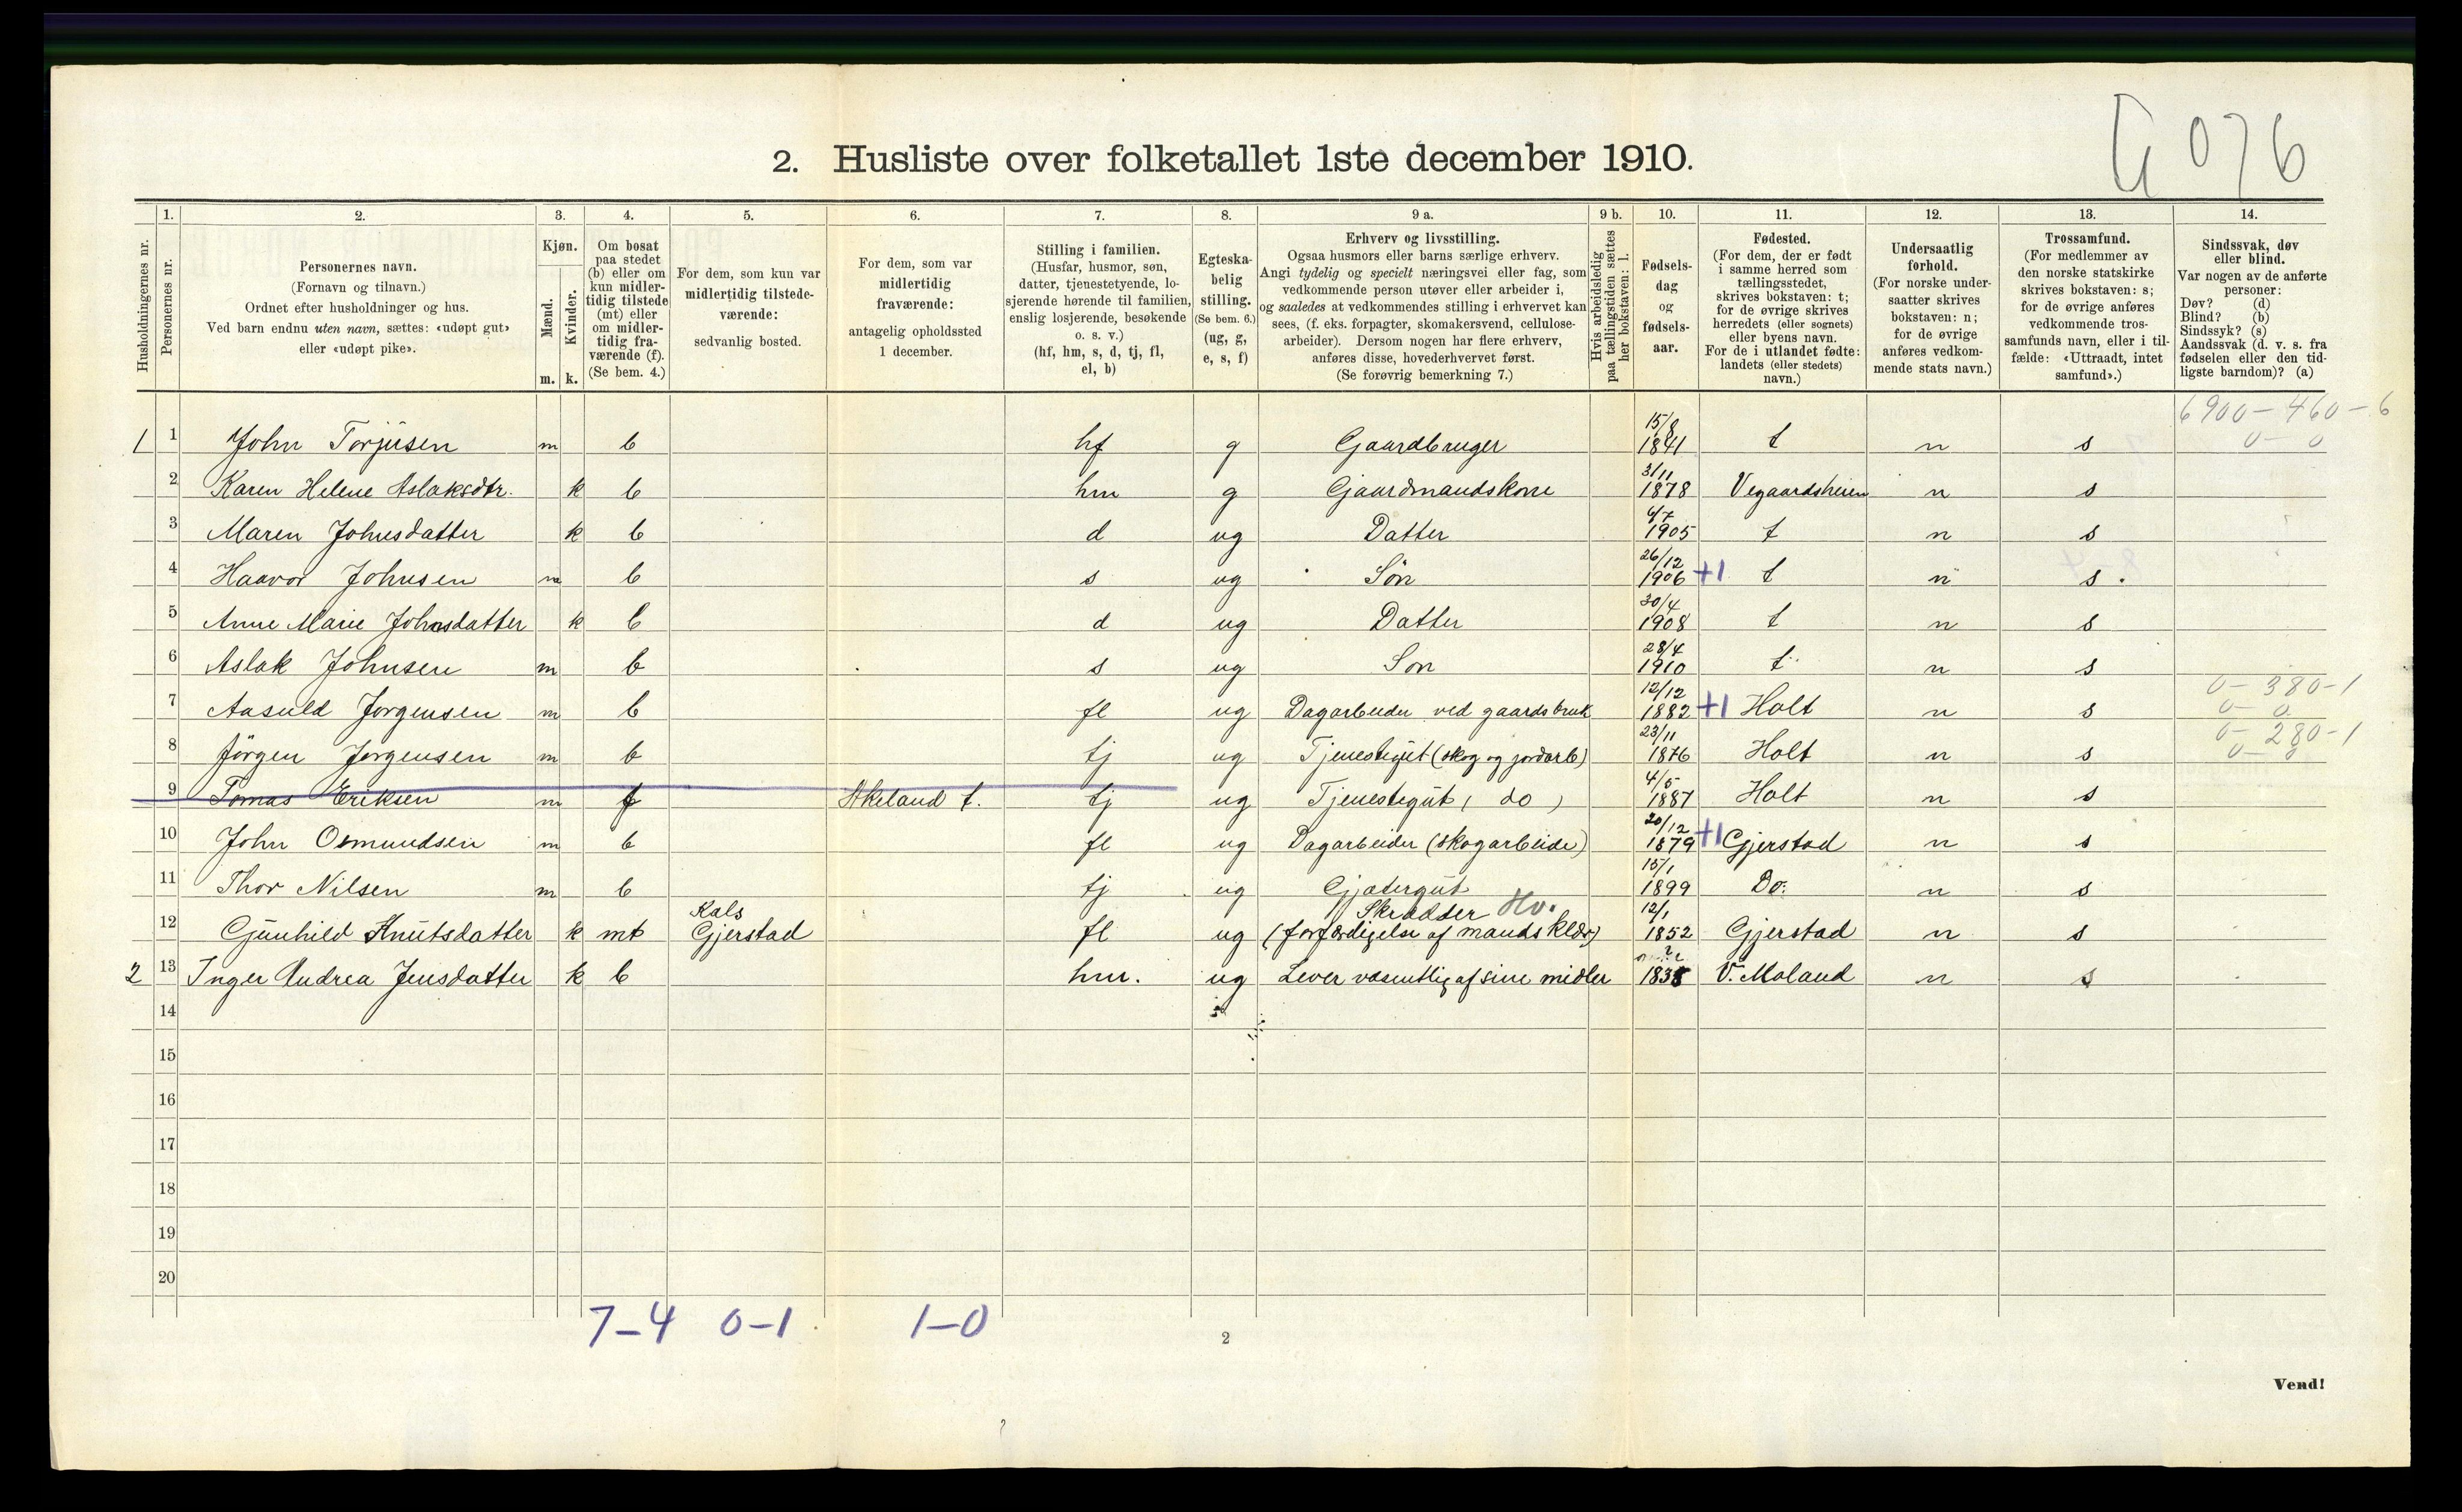 G 076
2. Husliste over folketallet 1ste december 1910.
Husholdningernes nr.
1. Personernes nr.
2. Personernes navn.
(Fornavn og tilnavn.)
Ordnet efter husholdninger og hus.
Ved barn endnu uten navn, sættes: «udøpt gut»
eller «udøpt pike».
3. Kjøn.
Mænd. m.
Kvinder. k.
4. Om bosat
paa stedet
(b) eller om
kun midler-
tidig tilstede
(mt) eller
om midler-
tidig fra-
værende (f).
(Se bem. 4.)
5. For dem, som kun var
midlertidig tilstede-
værende:
sedvanlig bosted.
6. For dem, som var
midlertidig
fraværende:
antagelig opholdssted
1 december.
7. Stilling i familien.
(Husfar, husmor, søn,
datter, tjenestetyende, lo-
sjerende hørende til familien,
enslig losjerende, besøkende
o. s. v.)
(hf, hm, s, d, tj, fl,
el, b)
8. Egteska-
belig
stilling.
(Se bem. 6.)
(ug, g,
e, s, f)
9 a. Erhverv og livsstilling.
Ogsaa husmors eller barns særlige erhverv.
Angi tydelig og specielt næringsvei eller fag, som
vedkommende person utøver eller arbeider i,
og saaledes at vedkommendes stilling i erhvervet kan
sees, (f. eks. forpagter, skomakersvend, cellulose-
arbeider). Dersom nogen har flere erhverv,
anføres disse, hovederhvervet først.
(Se forøvrig bemerkning 7.)
9 b. Hvis arbeidsledig
paa tællingstiden sættes
her bokstaven: l.
10. Fødsels-
dag
og
fødsels-
aar.
11. Fødested.
(For dem, der er født
i samme herred som
tællingsstedet,
skrives bokstaven: t;
for de øvrige skrives
herredets (eller sognets)
eller byens navn.
For de i utlandet fødte:
landets (eller stedets)
navn.)
12. Undersaatlig
forhold.
(For norske under-
saatter skrives
bokstaven: n;
for de øvrige
anføres vedkom-
mende stats navn.)
13. Trossamfund.
(For medlemmer av
den norske statskirke
skrives bokstaven: s;
for de øvrige anføres
vedkommende tros-
samfunds navn, eller i til-
fælde: «Uttraadt, intet
samfund».)
14. Sindssvak, døv
eller blind.
Var nogen av de anførte
personer:
Døv? (d)
Blind? (b)
Sindssyk? (s)
Aandssvak (d. v. s. fra
fødselen eller den tid-
ligste barndom)? (a)
6900-460-6
0-0
1 1 John Torjusen m b hf g Gaardbruger 15/8 1841 t n s
2 Karen Helene Aslaksdtr. k b hm g Gaardmandskone 3/11 1878 Vegaardsheien n s
3 Maren Johnsdatter k b d ug Datter 6/7 1905 t n s
4 Haavor Johnsen m b s ug Søn 26/12 1906 +1 t n s
5 Anne Marie Johnsdatter k b d ug Datter 30/4 1908 t n s
6 Aslak Johnsen m b s ug Son 28/4 1910 t n s
7 Aasuld Jørgensen m b fl ug Dagarbeider ved gaardsbruk 12/12 1882 +1 Holt n s 0-380-1 0-0
8 Jörgen Jørgensen m b tj ug Tjenestegut (skog og jordarb) 23/11 1876 Holt n s 0-280-1 0-0
9 Tomas Eriksen m f Akeland t. tj ug Tjenestegut ( do ) 4/5 1887 Holt n s
10 John Osmundsen m b fl ug Dagarbeider (skogarbeide) 20/12 1879 +1 Gjerstad n s
11 Thor Nilsen m b tj ug Gjætergut 15/1 1899 Do. n s
12 Gunhild Knutsdatter k mt Kals Gjerstad fl ug Skrædder Hv. (forfærdigelse af mands klær) 12/1 1852 Gjerstad n s
2 13 Inger Andrea Jensdatter k b hm. ug Lever væsentlig af sine midler V. Moland n s
14
15
16
17
18
19
20
7-4 0-1 1-0
2
Vend!